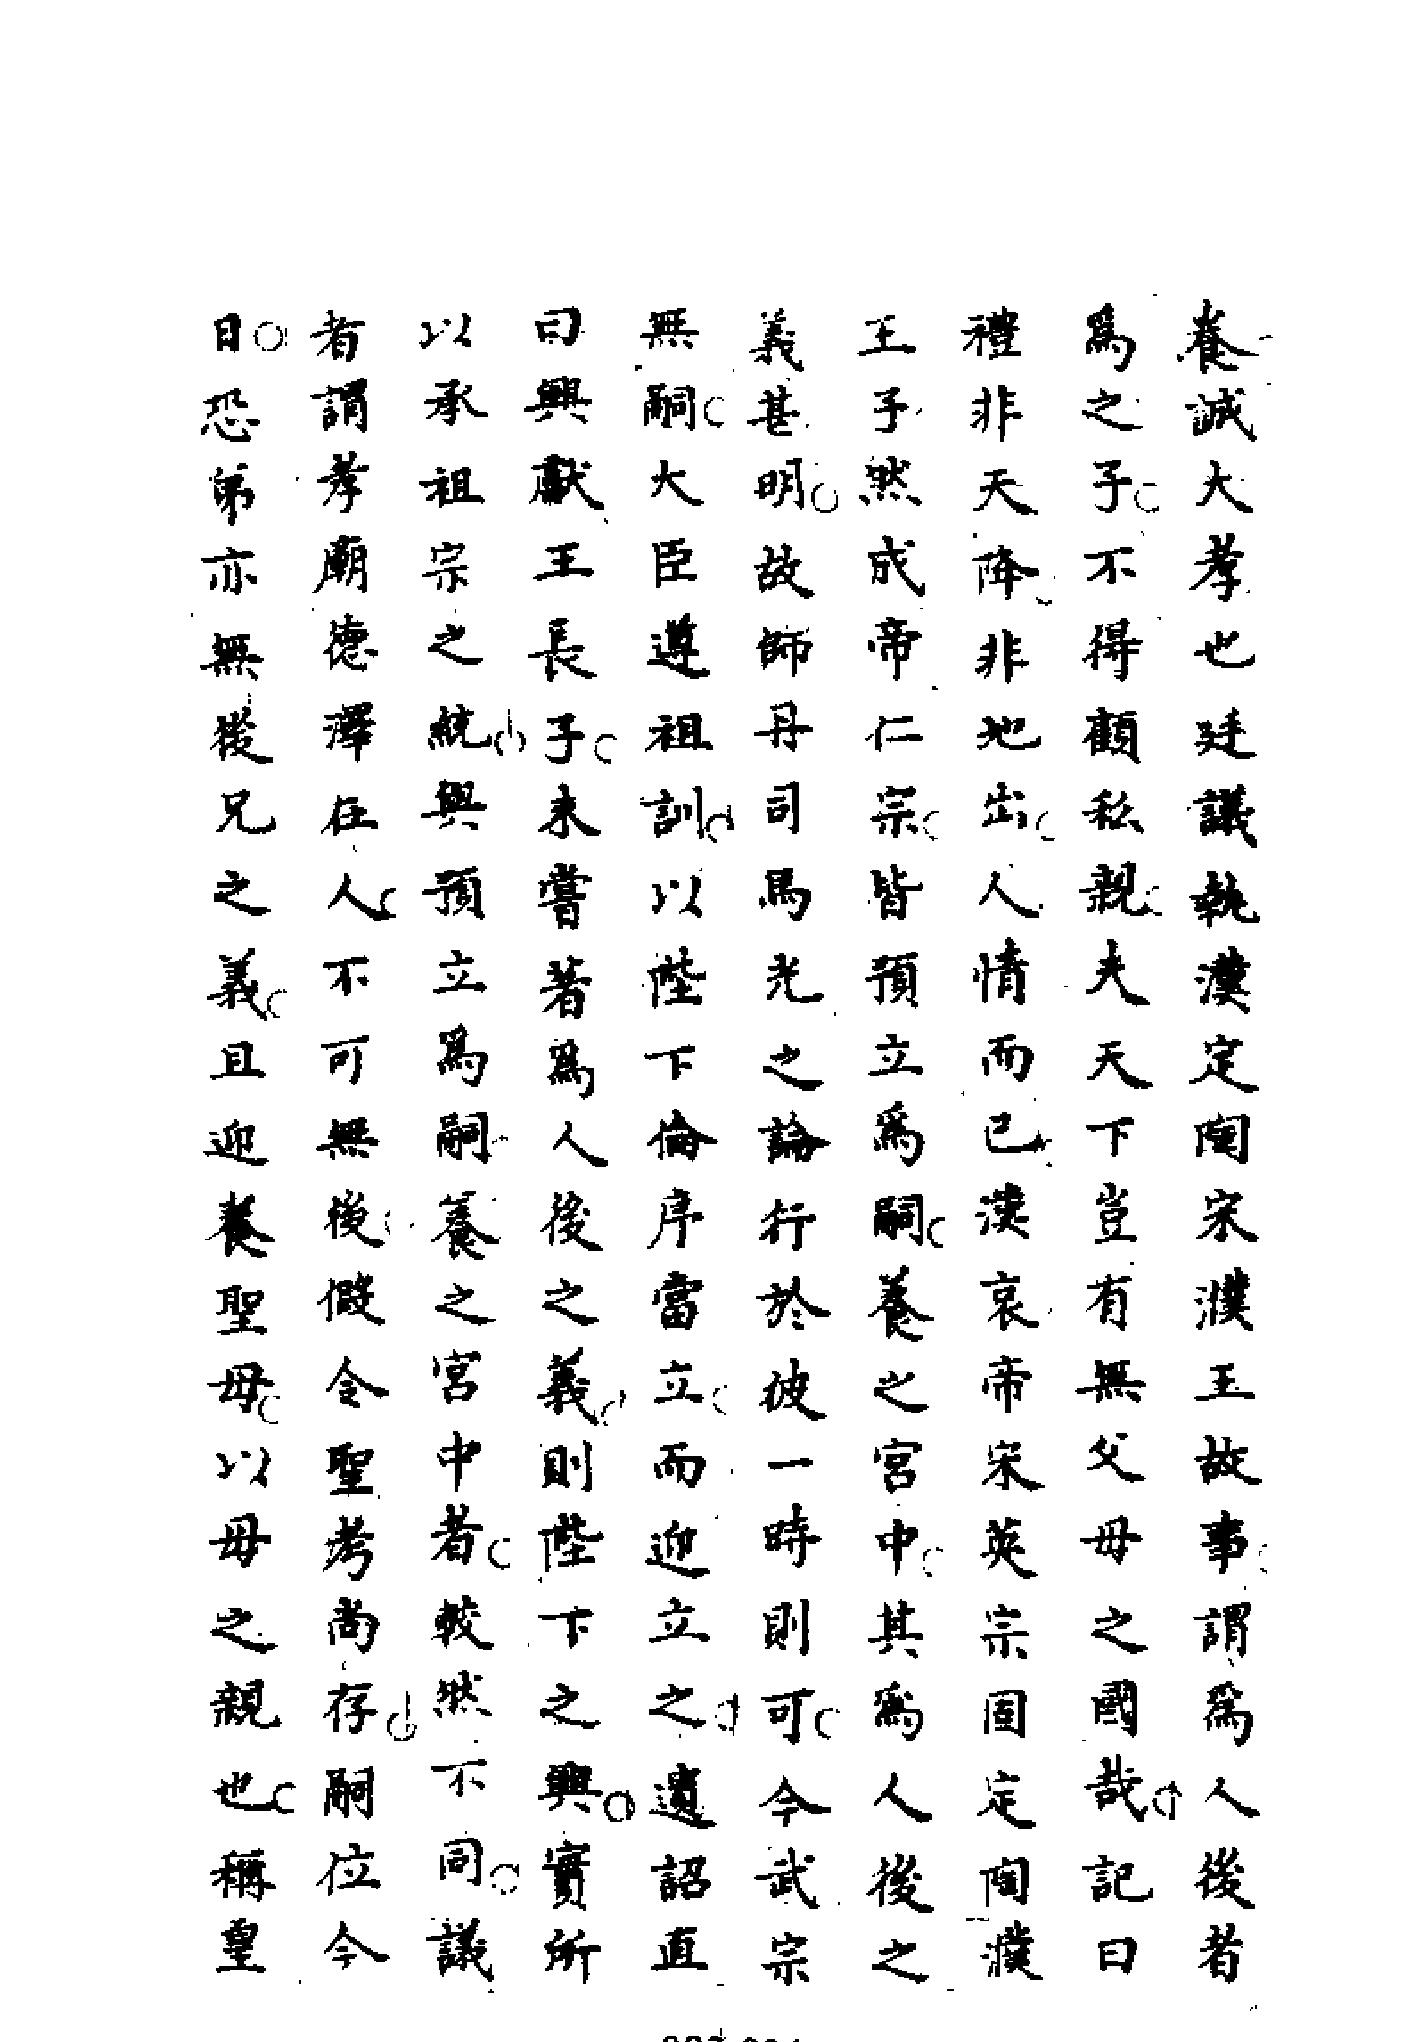 養誠大孝也廷議執漢定陶宋濮王故事謂爲人後者
爲之子不得顧私親夫天下豈有無父母之國哉記曰
禮非天降非地出人情而已漢哀帝宋英宗固定陶濮
王子然成帝仁宗皆預立爲嗣養之宮中其爲人後之
義甚明故師丹司馬光之論行於彼一時則可今武宗
無嗣大臣遵祖訓以陛下倫序當立而迎立之遺詔直
曰興獻王長子未嘗著爲人後之義則陛下之興實所
以承祖宗之統與預立爲嗣養之宮中者較然不同議
者謂孝廟德澤在人不可無後假令聖考尚存嗣位今
日恐弟亦無後兄之義且迎養聖母以母之親也稱皇